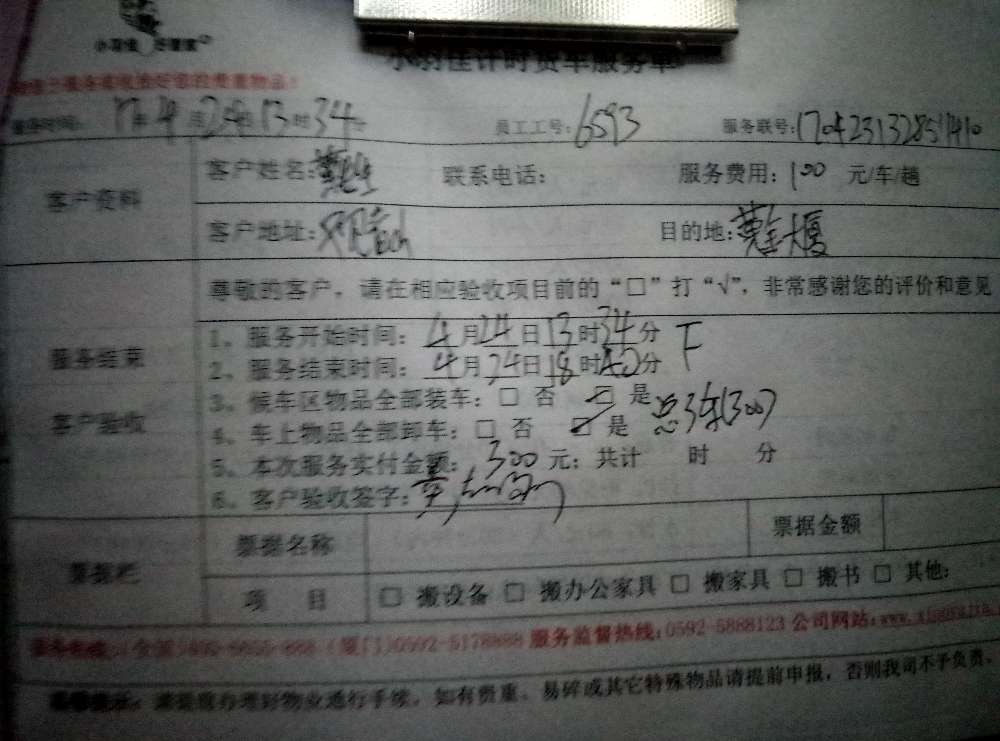 小羽佳计时货车服务单
服务时间: 17年4月24日13时34分 员工工号: 6593 服务联号:
客户资料
客户姓名: 联系电话: 服务费用: 100 元/车/趟
客户地址: 目的地:
尊敬的客户，请在相应验收项目前的“□”打“√”，非常感谢您的评价和意见
服务结束
客户验收
1、服务开始时间: 4月24日13时34分 下
2、服务结束时间: 4月24日18时40分
3、候车区物品全部装车: □ 否 ☑ 是
4、车上物品全部卸车: □ 否 ☑ 是 总3车(300)
5、本次服务实付金额: 300 元；共计 时 分
6、客户验收签字:
票据栏
票据名称 票据金额
项 目 □ 搬设备 □ 搬办公家具 □ 搬家具 □ 搬书 □ 其他:
(厦门)0592-5178888 服务监督热线: 0592-5888123 公司网站:
办理好物业通行手续，如有贵重、易碎或其它特殊物品请提前申报，否则我司不予负责。